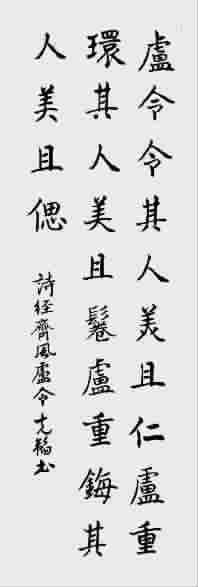 盧令令其人美且仁盧重
環其人美且鬈盧重鋂其
人美且偲
詩經齊風盧令